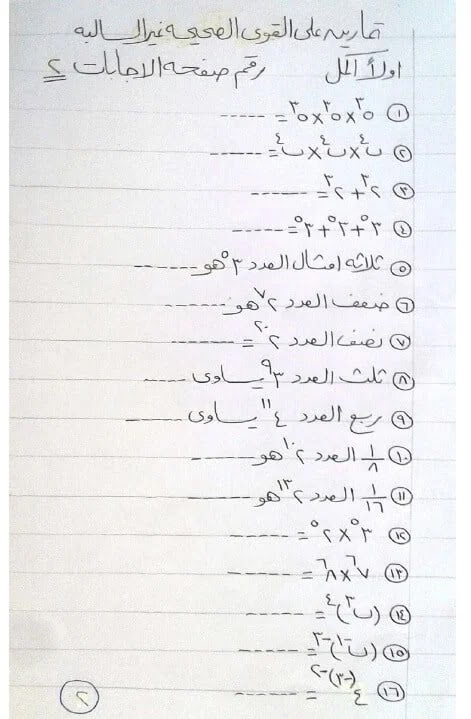 تمارين على القوى الصحيحة غير السالبة
اولاً أكمل رقم صفحة الاجابات ٢
① ٥³ × ٥³ × ٥³ = -----
② ب⁴ × ب⁴ × ب⁴ = -----
③ ٢³ + ٢³ = -----
④ ٣⁵ + ٣⁵ + ٣⁵ = -----
⑤ ثلاثة امثال العدد ٣⁵ هو -----
⑥ ضعف العدد ٢⁷ هو -----
⑦ نصف العدد ٢²⁰ = -----
⑧ ثلث العدد ٣⁹ يساوى -----
⑨ ربع العدد ٤¹¹ يساوى -----
⑩ ١/٨ العدد ٢¹⁰ هو -----
⑪ ١/١٦ العدد ٢¹³ هو -----
⑫ ٣⁵ × ٢⁵ = -----
⑬ ٧⁶ × ٨⁶ = -----
⑭ (ب³)⁴ = -----
⑮ (ب⁻¹)⁻³ = -----
⑯ ٤^(-٣)^-٢ = -----
٢